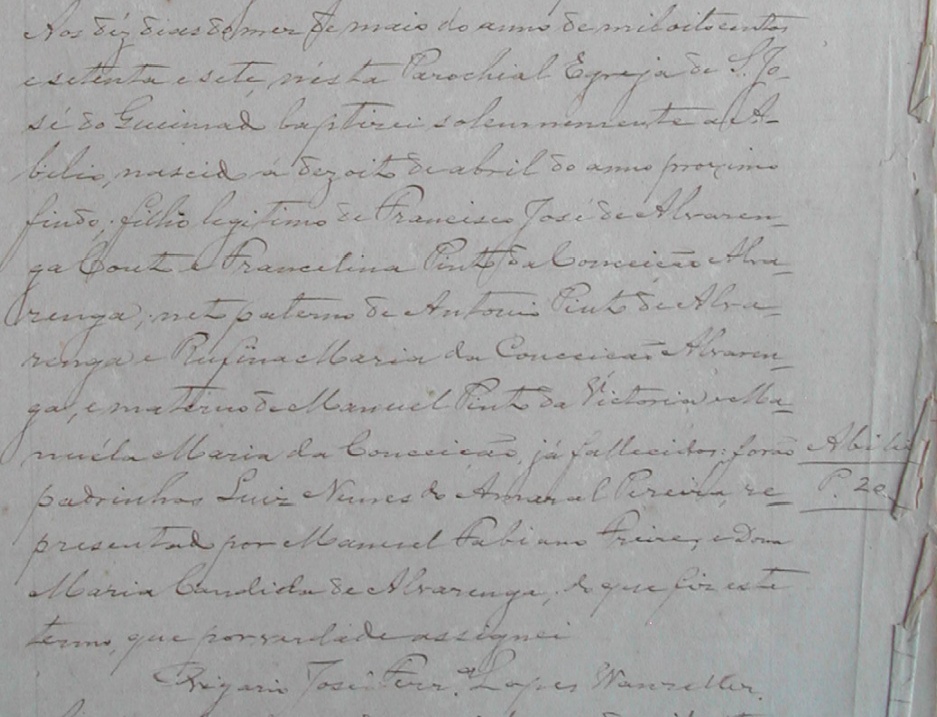 Aos déz dias do mez de maio do anno de mil oito centos
e setenta e sete, nésta Parochial Egreja de S. Jo-
sé do Gueimad baptizei solemnemente a A-
bilio, nascido á dezoito de abril do anno proximo
findo, filho legitimo de Francisco José de Alvaren-
ga Couto e Francelina Pinto da Conceição Alva-
renga; neto paterno de Antonio Pinto de Alva-
renga e Rufina Maria da Conceicão Alvaren-
ga, e materno de Manuel Pinto da Victoria e Ma-
nuéla Maria da Conceicão, já fallecidos: forão
padrinhos Luiz Nunes do Amaral Pereira, re-
presentado por Manuel Fabiano Freire, e Dona
Maria Candida de Alvarenga, do que fiz este
termo, que por verdade assignei
Vigario José Ferr.ª Lopes Wanzeller.
Abilio
P. 20